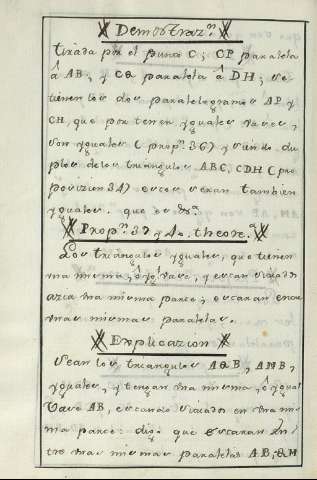 Demostraz.n
tirada por el punto C; CP paralela
â AB, y CQ paralela â DH; se
tienen los dos paralelogramos AP y
CH, que por tener yguales vases,
son yguales (prop.n 36) y siendo du
plos de los triangulos ABC, CDH (pro
posizion 34) estos seran tambien
yguales. que es D.n
Prop.n 39 y 40. theore.a
Los triangulos yguales, que tienen
vna misma, ô ygl vase, y estan tirados
azia vna misma parte; estaran entre
vnas mismas paralelas.
Explicazion
Sean los triangulos AQB, AMB,
yguales, y tengan vna misma, ô ygual
vase AB, estando tirados en vna mis
ma parte: digo que estaran en
tre vnas mismas paralelas AB, QM